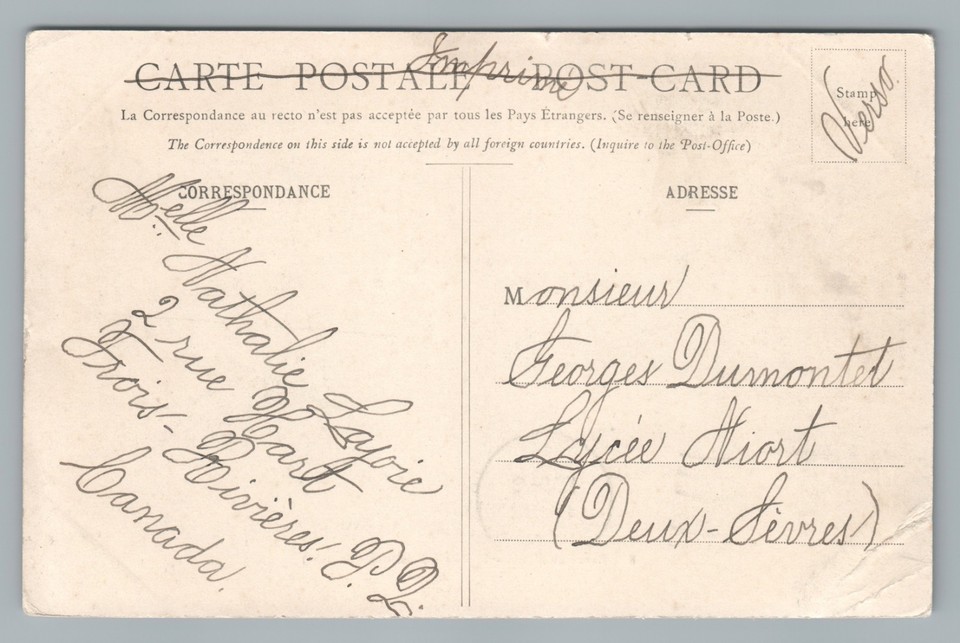 Imprimé
CARTE POSTALE POST-CARD
La Correspondance au recto n'est pas acceptée par tous les Pays Étrangers. (Se renseigner à la Poste.)
The Correspondence on this side is not accepted by all foreign countries. (Inquire to the Post-Office)
Stamp
here
Verso.
CORRESPONDANCE
Melle Nathalie Lajoie
2 rue Hart
Trois-Rivières. P.Q.
Canada.
ADRESSE
Monsieur
Georges Dumontet
Lycée Niort
(Deux-Sèvres)